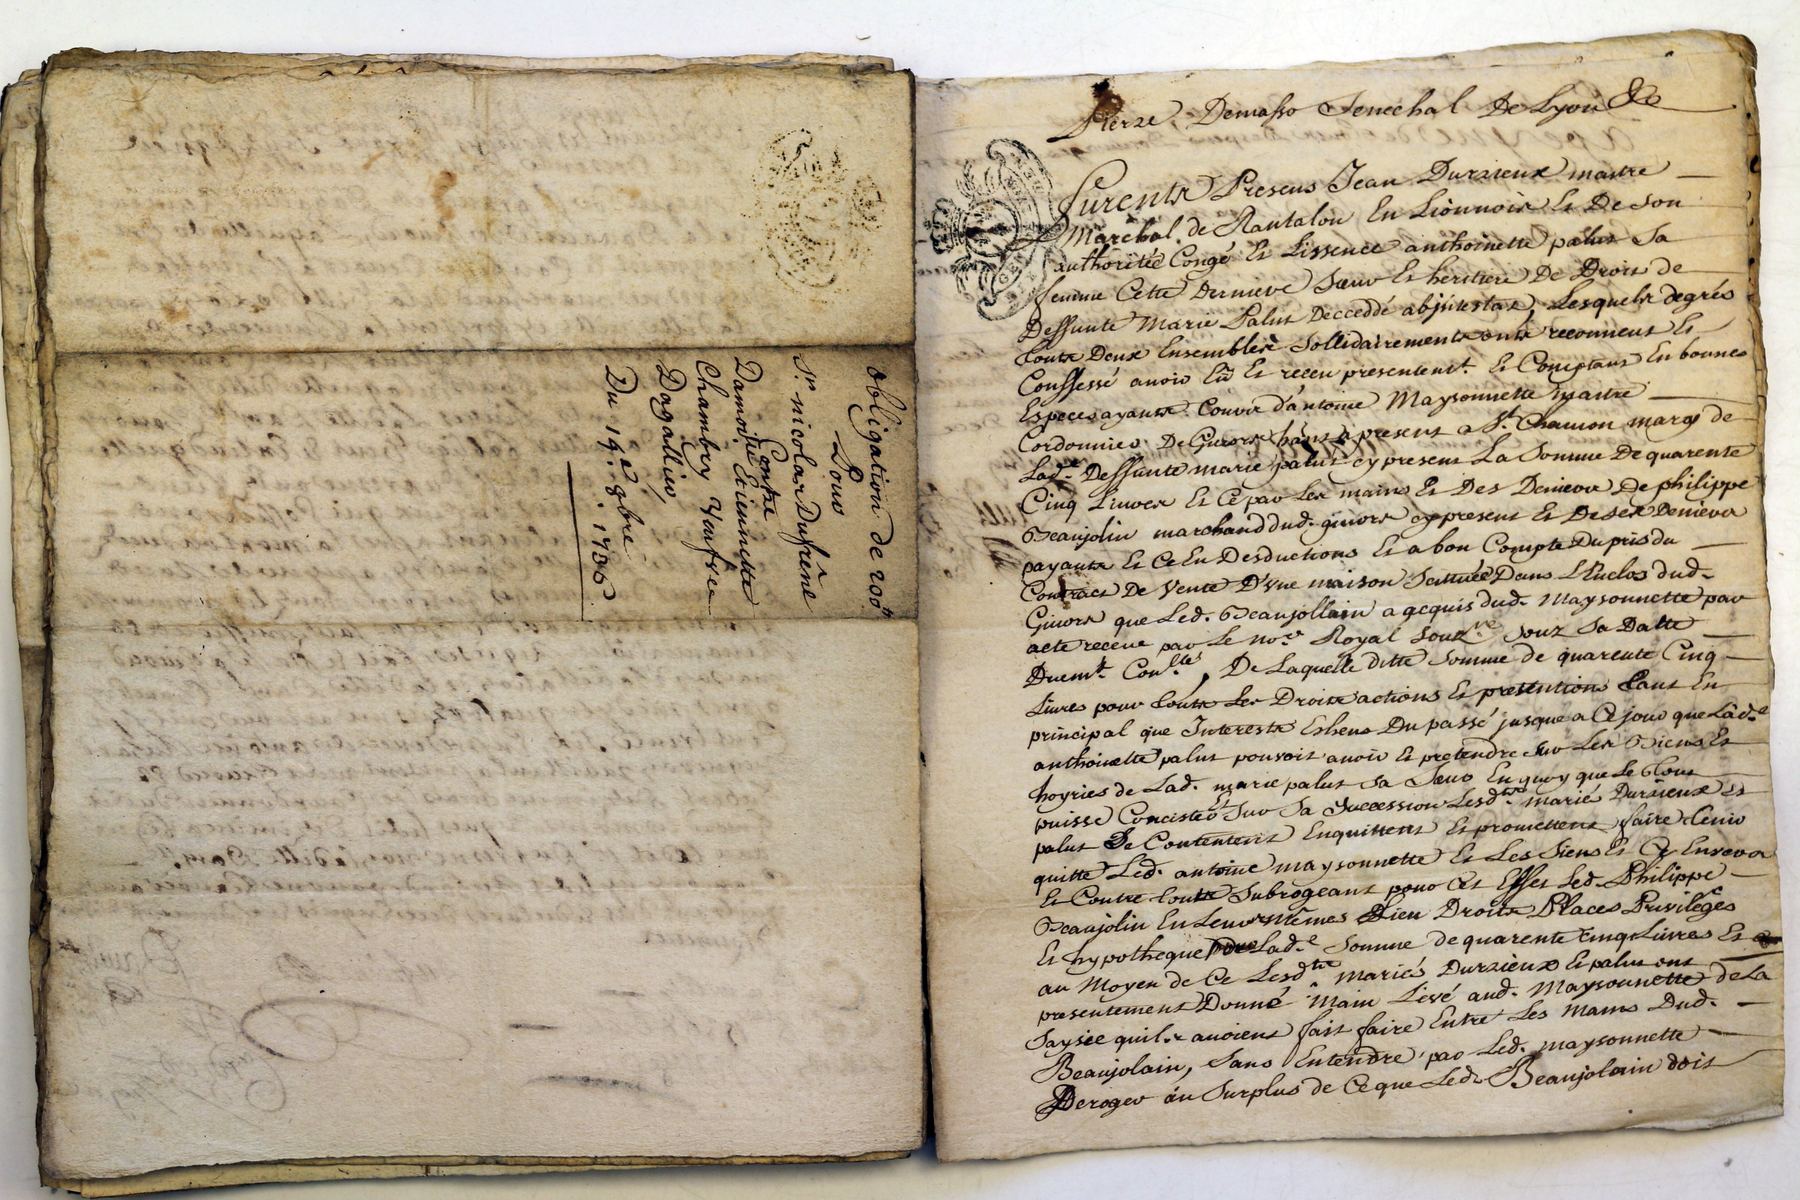 obligation de 200 tt
Pour
Sr. nicolas Dufrêne
Contre
Damoise. Etiennette
Chambry Veufve
Dagallier,
Du 19e. 9bre. 1736
Pierre Demasso Senechal De Lyon &a
Furents Presens Jean Durzieux maitre
Maréchal de Rantalon En Lionnois Et De Son
authoritée Congé Et Lissence anthoinette palus Sa
femme Cette Derniere Sœur Et heritiere De Droit de
Deffunte Marie Palus Decceddé abjntestat, Lesquels degrés
touts Deux Ensembles Sollidairements onts reconneut Et
Conffessé avoir Eü Et receu presentemt. Et Comptant En bonnes
Especes ayants Couvr d'antoine Maysonnette maitre
Cordonnier De Givors habt. a present a St. Chamon mary de
Lade. Deffunte marie palus cy present La Somme De quarente
Cinq Livres Et Ce par Les mains Et Des Deniers De philippe
Beaujolin marchand dud. givors cy present Et De Ses Deniers
payants Et Ce En Desductions Et a bon Compte Du pris du
Contract De Vente D'vne maison Scittuée Dans L'Enclos dud.
Givors que Led. Beaujollain a acquis dud. Maysonnette par
acte receue par Le nore Royal Souzne. Souz Sa Datte
Duemt. Conlée, De Laquelle ditte Somme de quarente Cinq
Livres pour touts Les Droits actions Et prettentions tant En
principal que Interests Eshens Du passé jusque a Ce jour que Lade.
anthoinette palus pouvoit avoir Et pretendre sur Les Biens Et
hoyries de Lad. marie palus Sa Sœur En quoy que Le tout
puisse Concister Sur Sa Succession Lesdts. mariés Durzieux Et
palus Se Contentent Enquittent Et promettent faire tenir
quitte Led. antoine maysonnette Et Les Siens Et Cy Envers
Et Contre touts Subrogeant pour Cet Effet Led. Philippe
Beaujolin En Leurs mêmes Lieu Droits Places Privileges
Et hypotheque pour Lade. Somme de quarente cinq Livres Et
au Moyen de Ce Lesdts. mariés Durzieux Et palus ont
presentement Donné Main Levé aud. Maysonnette de La
Saysie quils avoient fait faire Entre Les Mains Dud.
Beaujolain, Sans Entendre par Led. maysonnette
Deroger au Surplus de Ce que Led. Beaujolain doit